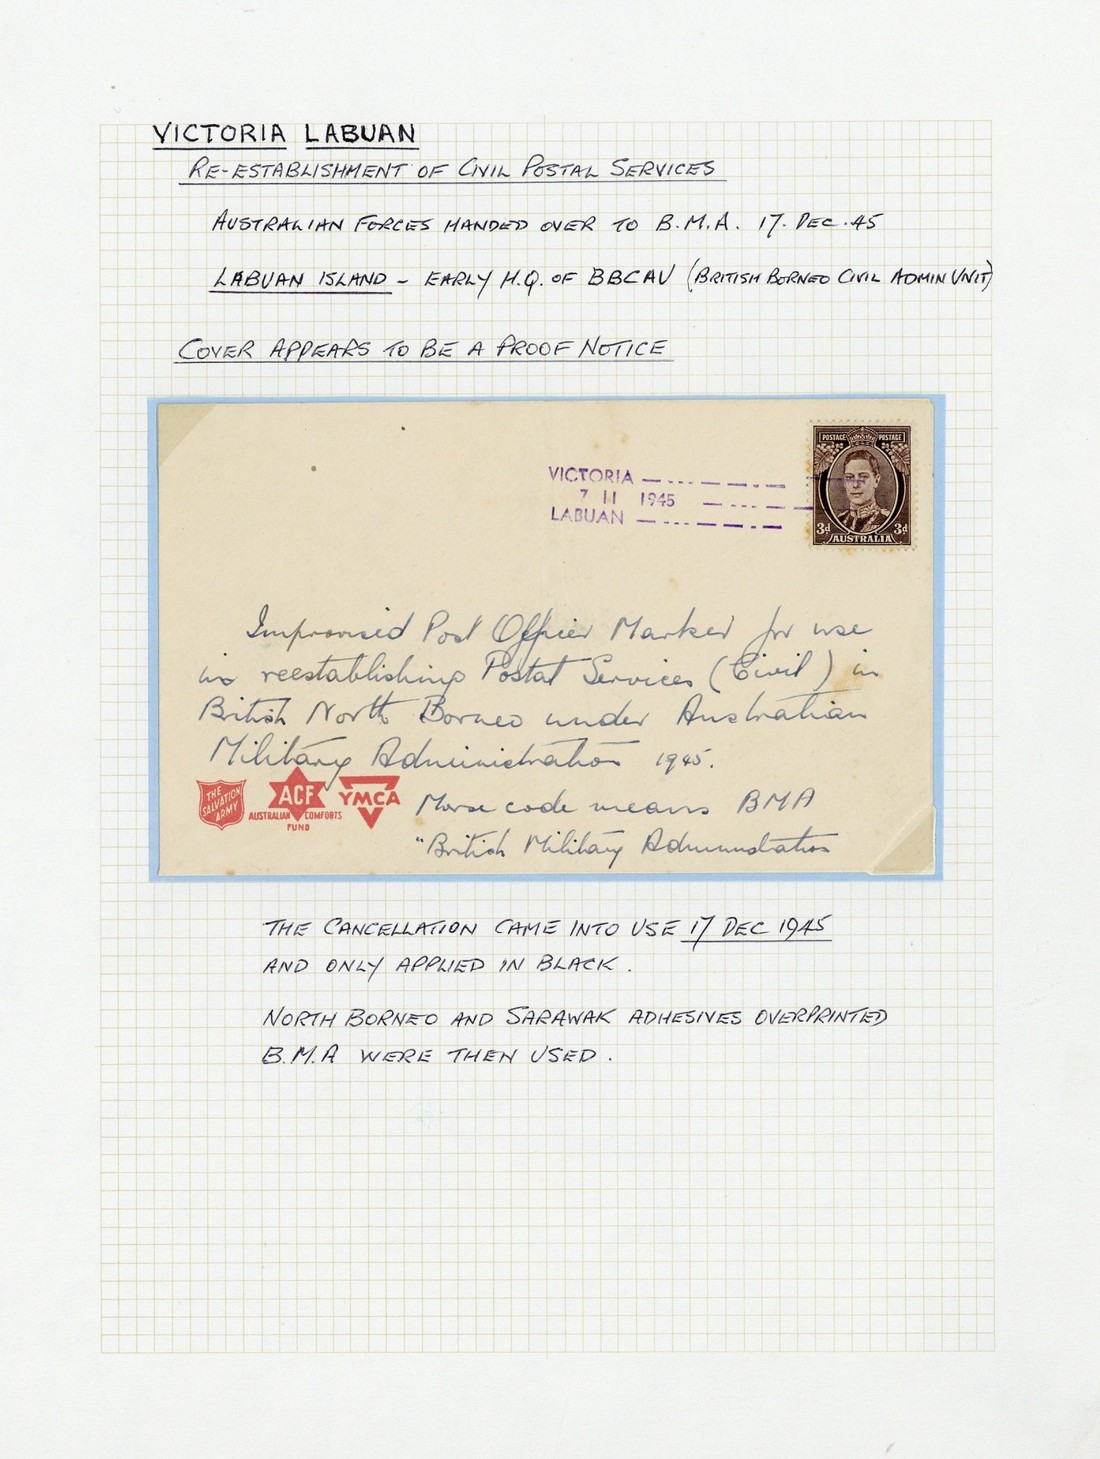 VICTORIA LABUAN
RE-ESTABLISHMENT OF CIVIL POSTAL SERVICES
AUSTRALIAN FORCES HANDED OVER TO B.M.A. 17. DEC. 45
LABUAN ISLAND - EARLY H.Q. OF BBCAU (BRITISH BORNEO CIVIL ADMIN UNIT)
COVER APPEARS TO BE A PROOF NOTICE
POSTAGE POSTAGE
VICTORIA
7 11 1945
LABUAN
3d 3d
AUSTRALIA
Improvised Post Office Marker for use
in reestablishing Postal Services (Civil) in
British North Borneo under Australian
Military Administration 1945.
THE SALVATION ARMY
ACF
AUSTRALIAN COMFORTS
FUND
YMCA
Morse code means BMA
"British Military Administration
THE CANCELLATION CAME INTO USE 17 DEC 1945
AND ONLY APPLIED IN BLACK.
NORTH BORNEO AND SARAWAK ADHESIVES OVERPRINTED
B.M.A WERE THEN USED.